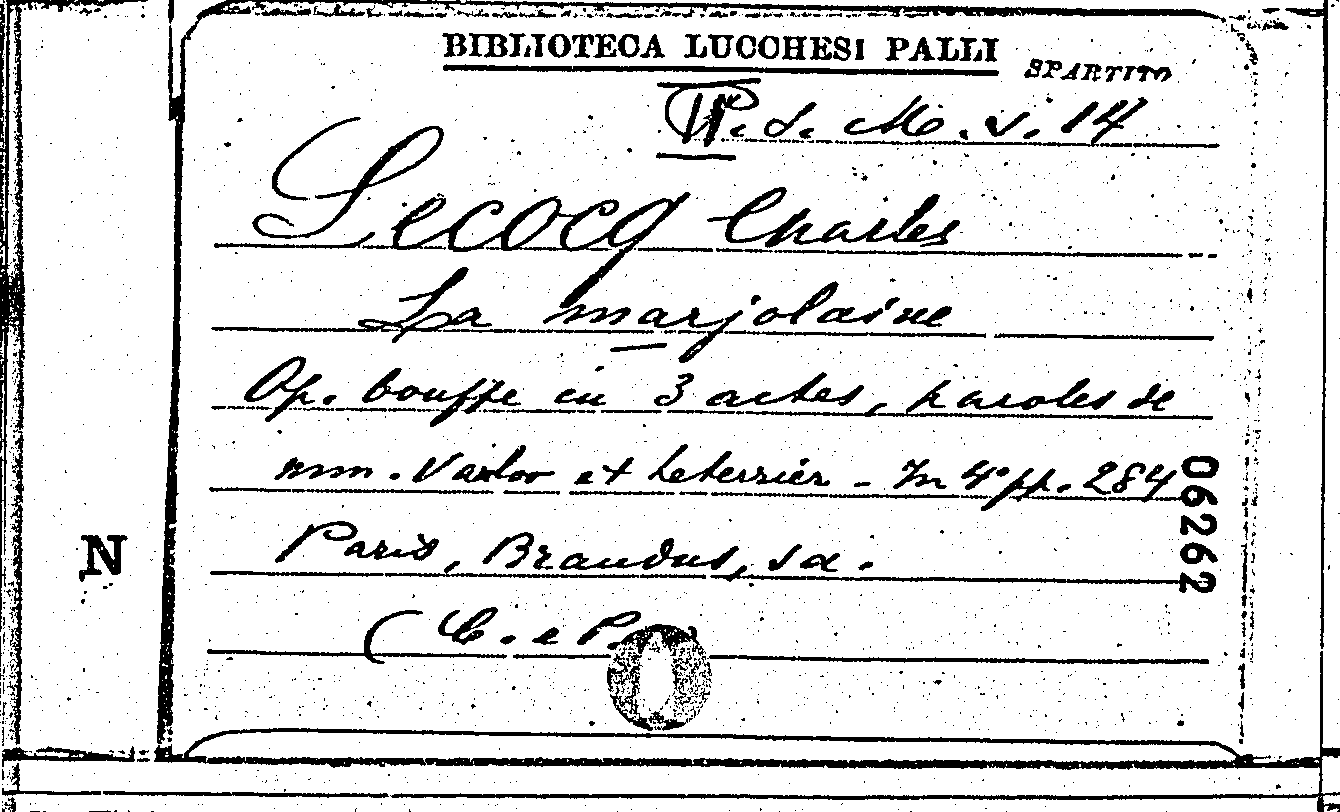 BIBLIOTECA LUCCHESI PALLI
SPARTITO
P. d. M. V. 14
Lecocq Charles
La marjolaine
Op. bouffe en 3 actes, paroles de
mm. Vanloo et Leterrier - In 4° pp. 284
Paris, Brandus, sd.
(C. e P.
06262
N